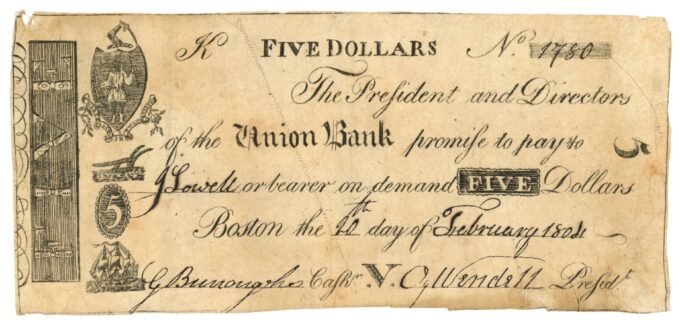 K FIVE DOLLARS No. 1780
The President and Directors
of the Union Bank promiſe to pay to
J Lowell or bearer on demand FIVE Dollars
Boston the th day of February 1804
G Burroughs Cashr. V. O, Wendell Presidt.
FIVE
5
5